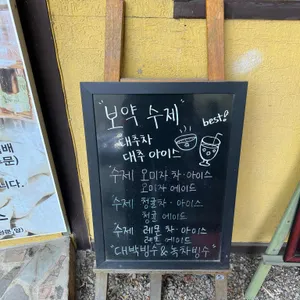 "보약 수제"
best!
대추차
대추 아이스
"수제 오미자 차·아이스
오미자 에이드
"수제 청귤차·아이스
청귤 에이드
"수제 레몬 차·아이스
레몬 에이드
"대박빙수 & 녹차빙수"
배
문)
니다.
스